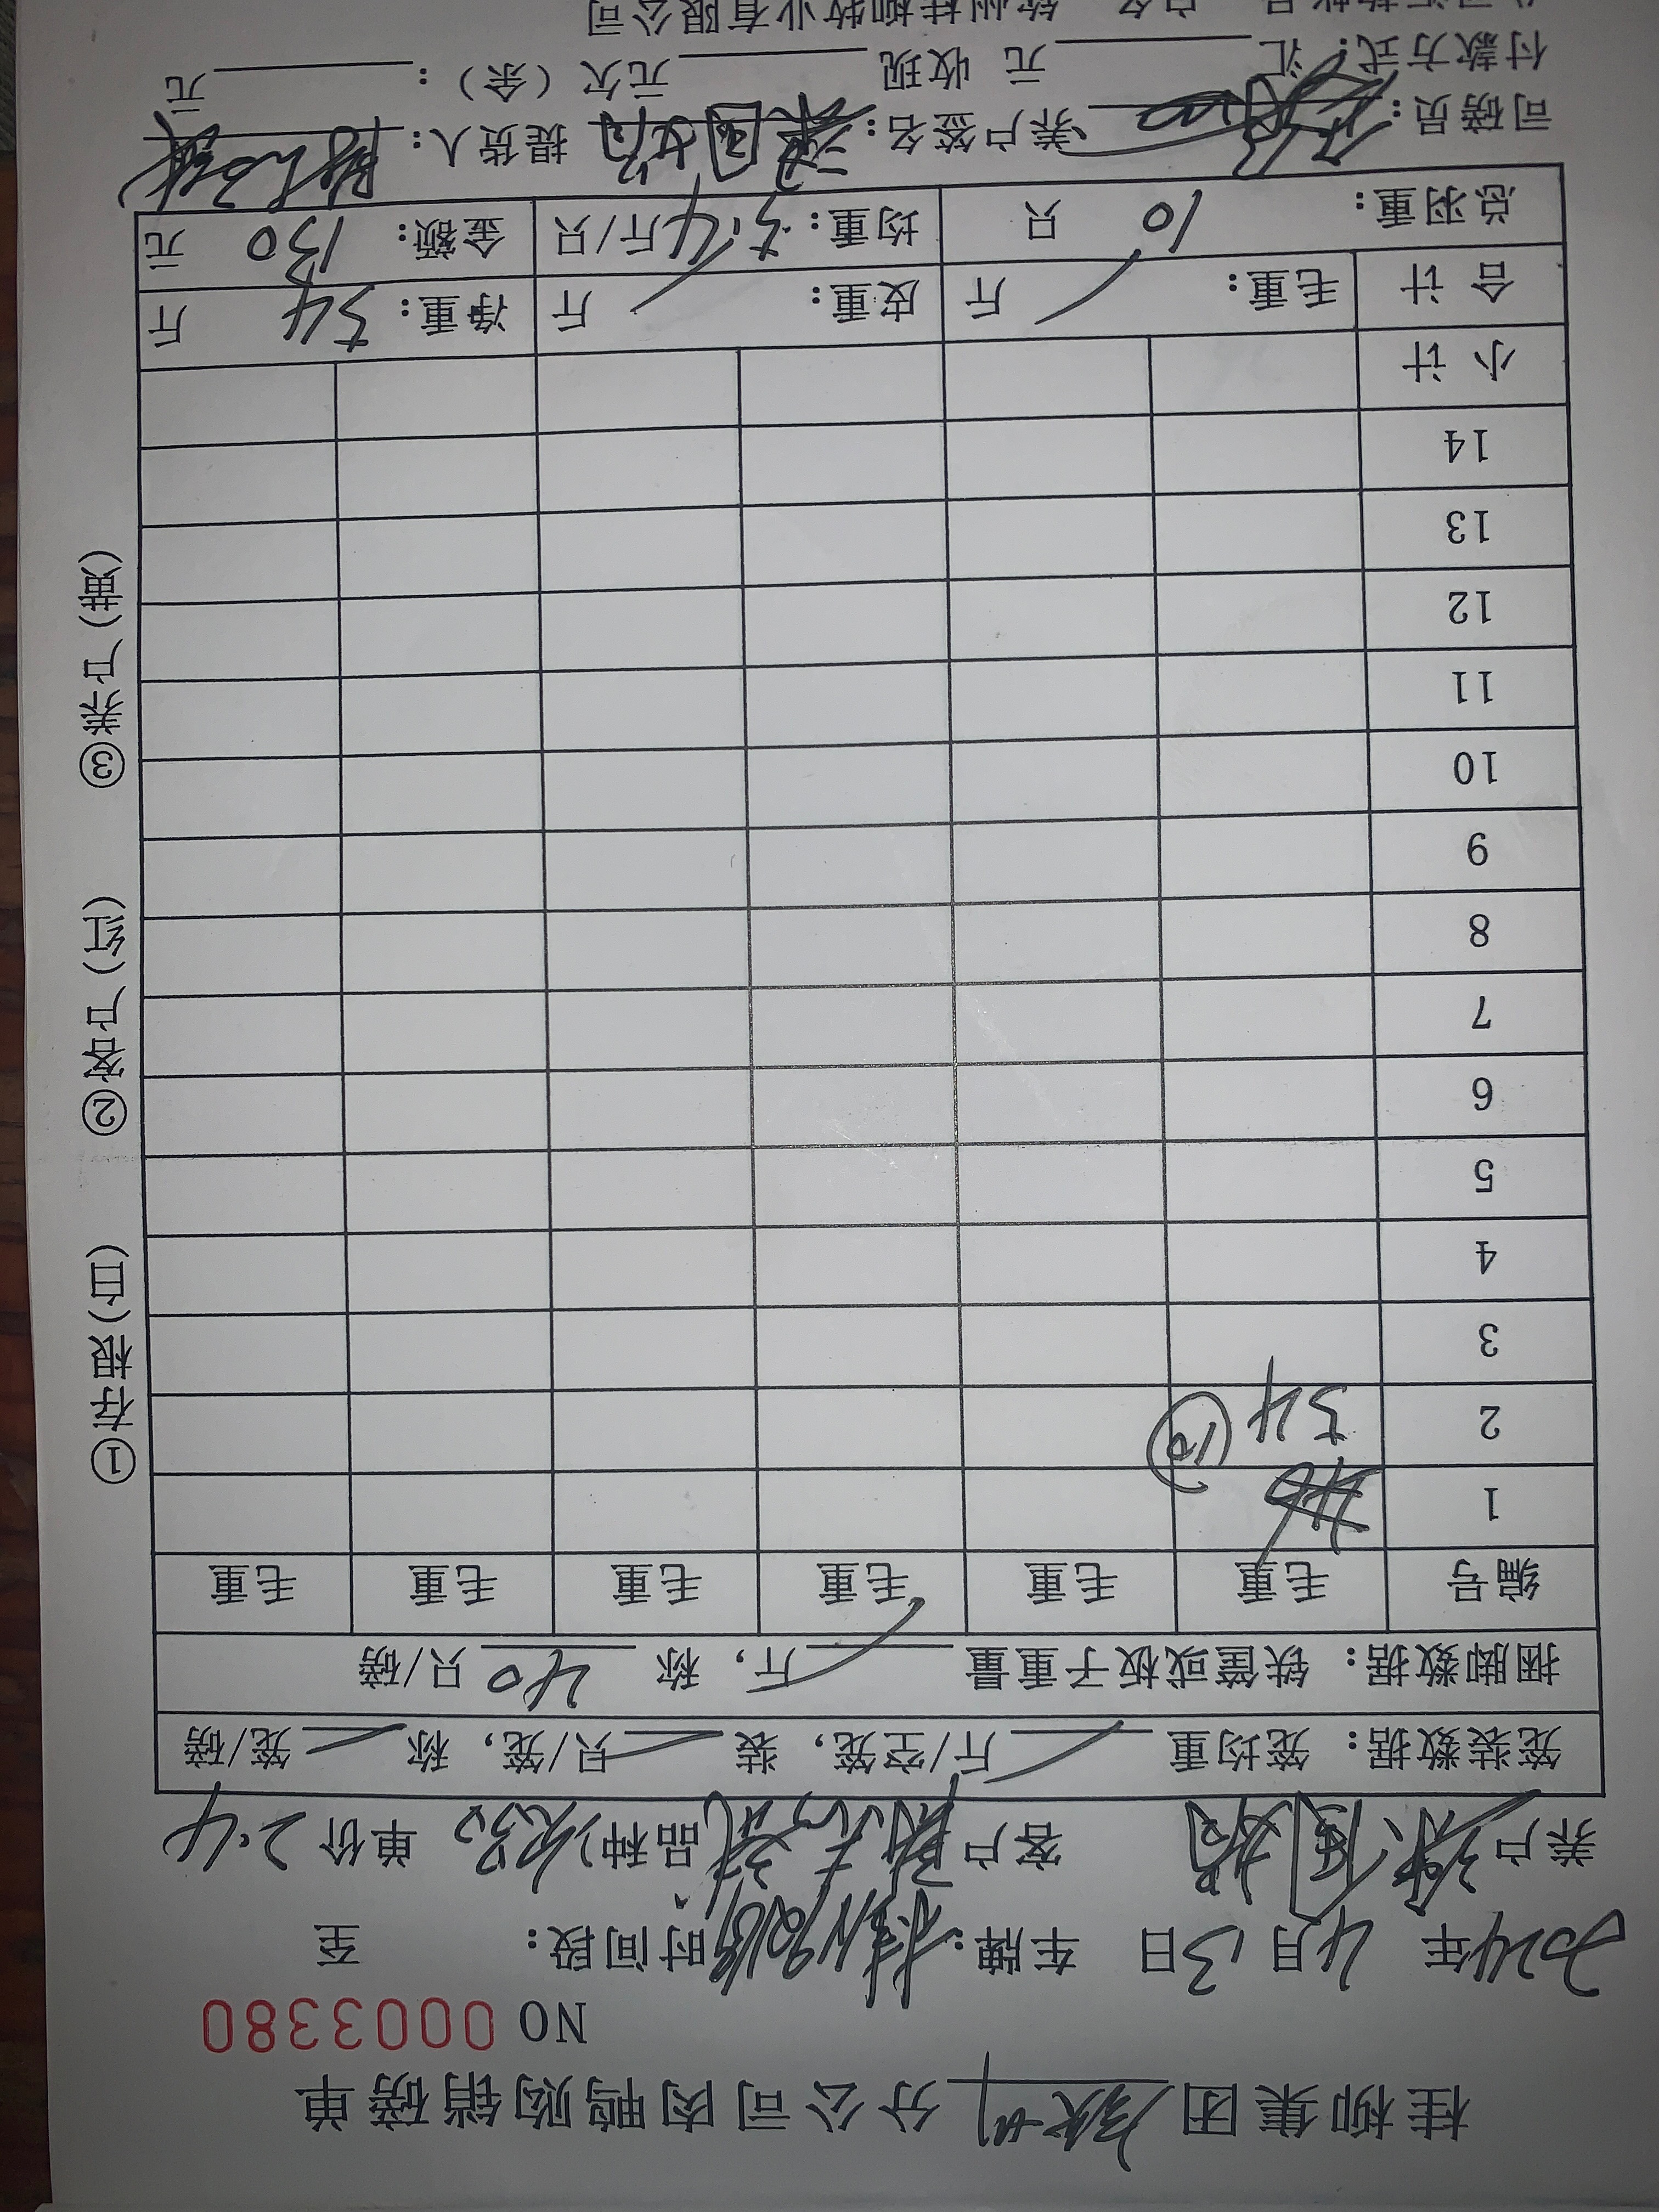 桂柳集团钦州分公司肉鸭购销磅单
NO 0003380
2024年 4月13日 车牌: 时间段: 至
养户 客户 品种 次30 单价 2.4
笼装数据: 笼均重 斤/空笼, 装 只/笼, 称 笼/磅
捆脚数据: 铁筐或板子重量 斤, 称 40 只/磅
编号 毛重 毛重 毛重 毛重 毛重 毛重
1
2 34 10
3
4
5
6
7
8
9
10
11
12
13
14
小计
合计 毛重: 斤 皮重: 斤 净重: 34 斤
总羽重: 10 只 均重: 3.4 斤/只 金额: 130 元
司磅员: 养户签名: 提货人:
付款方式: 汇 元 收现 元欠(余): 元
公司汇款账号 户名 钦州桂柳牧业有限公司
①存根(白) ②客户(红) ③养户(黄)